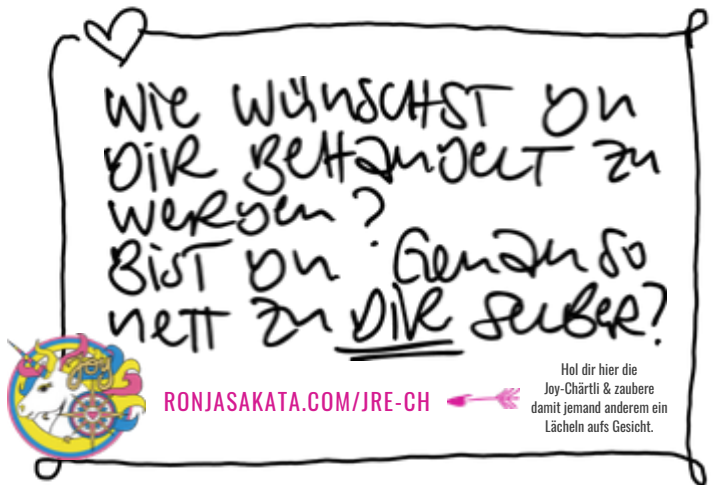 Wie wünschst du
dir behandelt zu
werden?
Bist du genauso
nett zu DIR selber?
Joy
RONJASAKATA.COM/JRE-CH
Hol dir hier die
Joy-Chärtli & zaubere
damit jemand anderem ein
Lächeln aufs Gesicht.